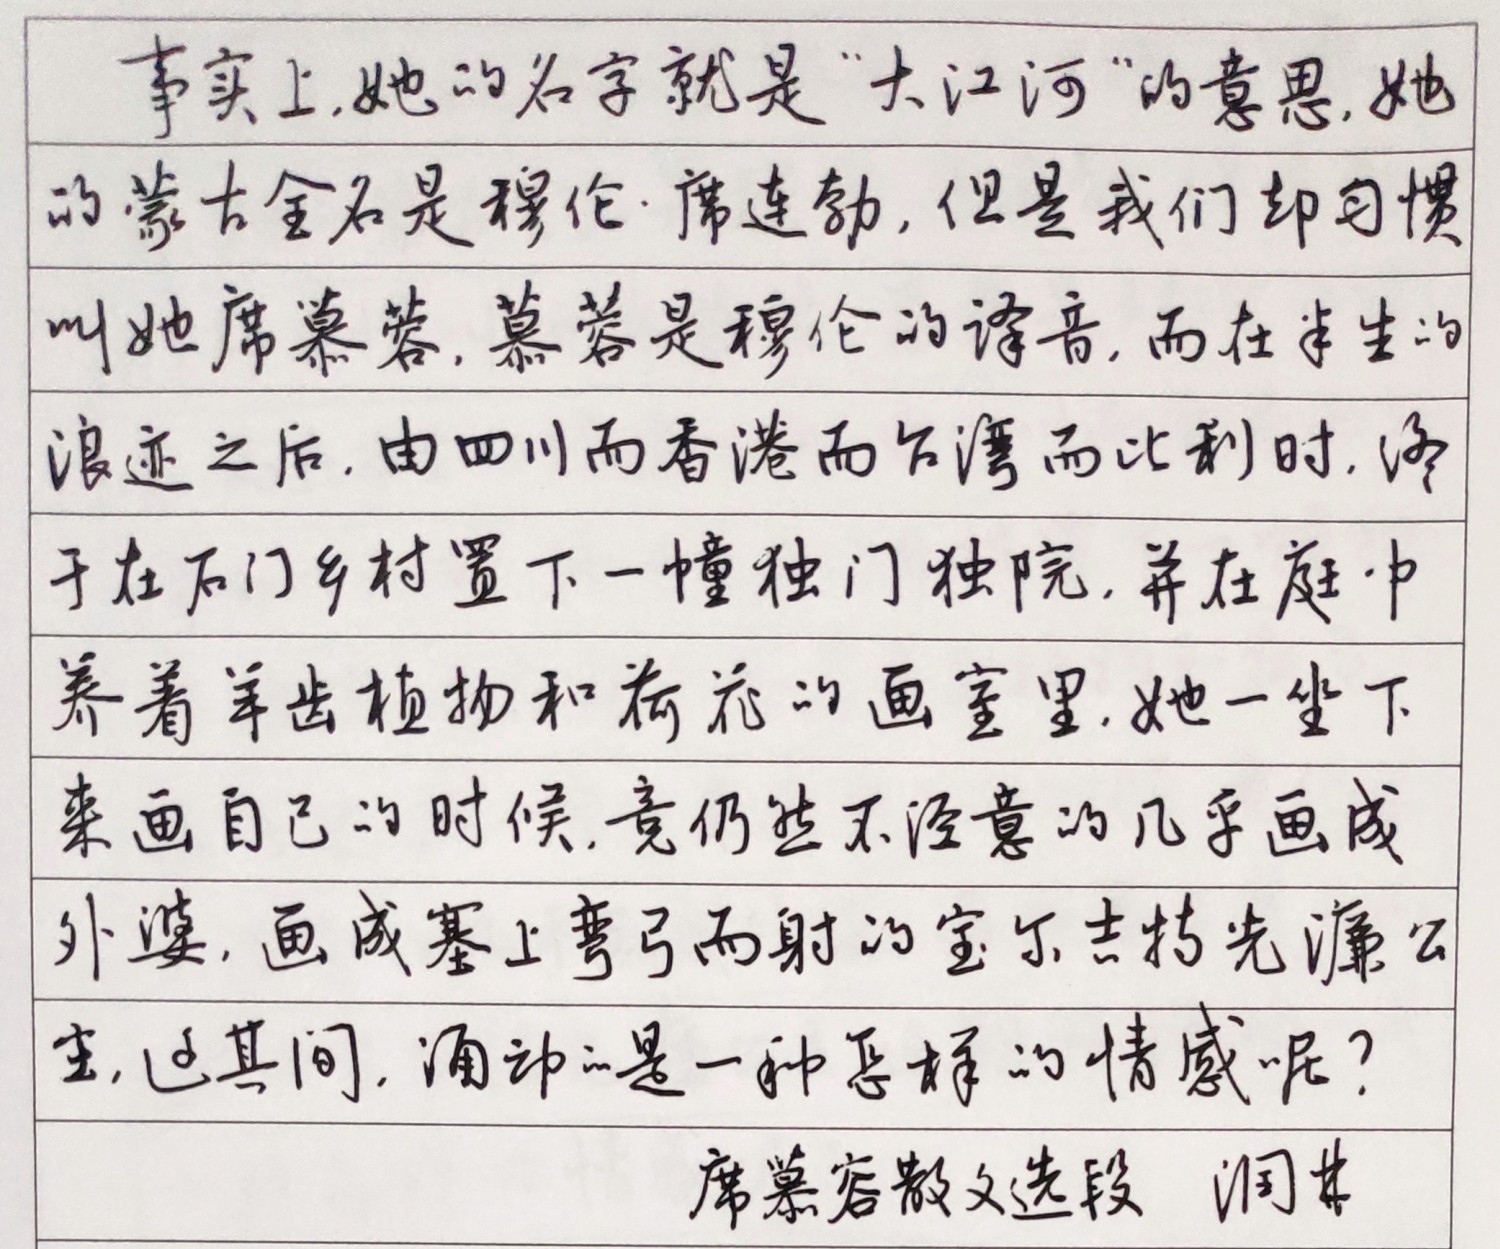 事实上，她的名字就是“大江河”的意思，她
的蒙古全名是穆伦·席连勃，但是我们却习惯
叫她席慕蓉，慕蓉是穆伦的译音，而在半生的
浪迹之后，由四川而香港而台湾而比利时，终
于在石门乡村置下一幢独门独院，并在庭中
养着羊齿植物和荷花的画室里，她一坐下
来画自己的时候，竟仍然不经意的几乎画成
外婆，画成塞上弯弓而射的宝尔吉特光濂公
主，这其间，涌动的是一种怎样的情感呢？
席慕容散文选段 润林